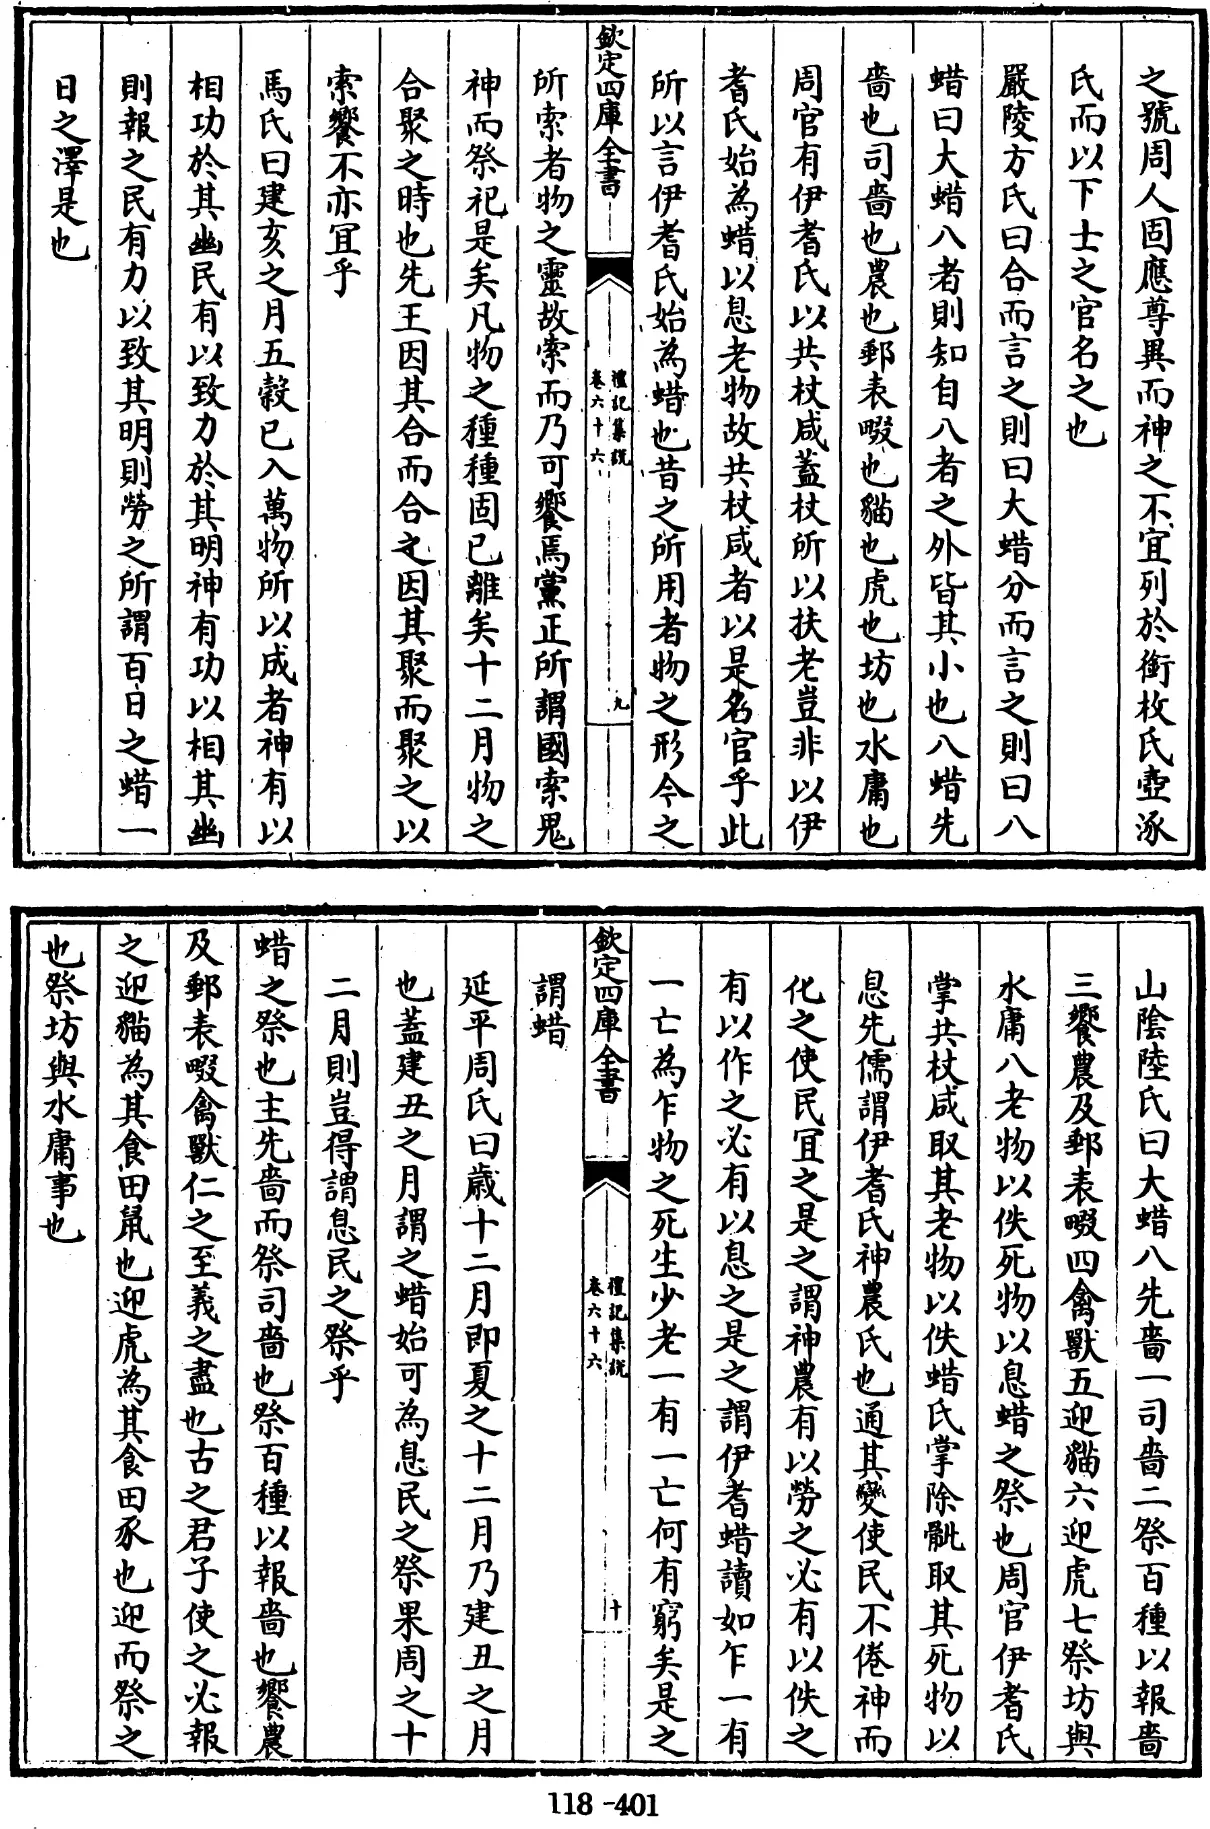 之號周人固應尊異而神之不宜列於銜枚氏壺涿
氏而以下士之官名之也
嚴陵方氏曰合而言之則曰大蜡分而言之則曰八
蜡曰大蜡八者則知自八者之外皆其小也八蜡先
嗇也司嗇也農也郵表畷也貓也虎也坊也水庸也
周官有伊耆氏以共杖咸蓋杖所以扶老豈非以伊
耆氏始為蜡以息老物故共杖咸者以是名官乎此
所以言伊耆氏始為蜡也昔之所用者物之形今之
欽定四庫全書
禮記集說
卷六十六
九
所索者物之靈故索而乃可饗焉黨正所謂國索鬼
神而祭祀是矣凡物之種種固已離矣十二月物之
合聚之時也先王因其合而合之因其聚而聚之以
索饗不亦宜乎
馬氏曰建亥之月五穀已入萬物所以成者神有以
相功於其幽民有以致力於其明神有功以相其幽
則報之民有力以致其明則勞之所謂百日之蜡一
日之澤是也
山陰陸氏曰大蜡八先嗇一司嗇二祭百種以報嗇
三饗農及郵表畷四禽獸五迎貓六迎虎七祭坊與
水庸八老物以佚死物以息蜡之祭也周官伊耆氏
掌共杖咸取其老物以佚蜡氏掌除骴取其死物以
息先儒謂伊耆氏神農氏也通其變使民不倦神而
化之使民宜之是之謂神農有以勞之必有以佚之
有以作之必有以息之是之謂伊耆蜡讀如乍一有
一亡為乍物之死生少老一有一亡何有窮矣是之
欽定四庫全書
禮記集說
卷六十六
十
謂蜡
延平周氏曰歲十二月即夏之十二月乃建丑之月
也蓋建丑之月謂之蜡始可為息民之祭果周之十
二月則豈得謂息民之祭乎
蜡之祭也主先嗇而祭司嗇也祭百種以報嗇也饗農
及郵表畷禽獸仁之至義之盡也古之君子使之必報
之迎貓為其食田鼠也迎虎為其食田豕也迎而祭之
也祭坊與水庸事也
118-401